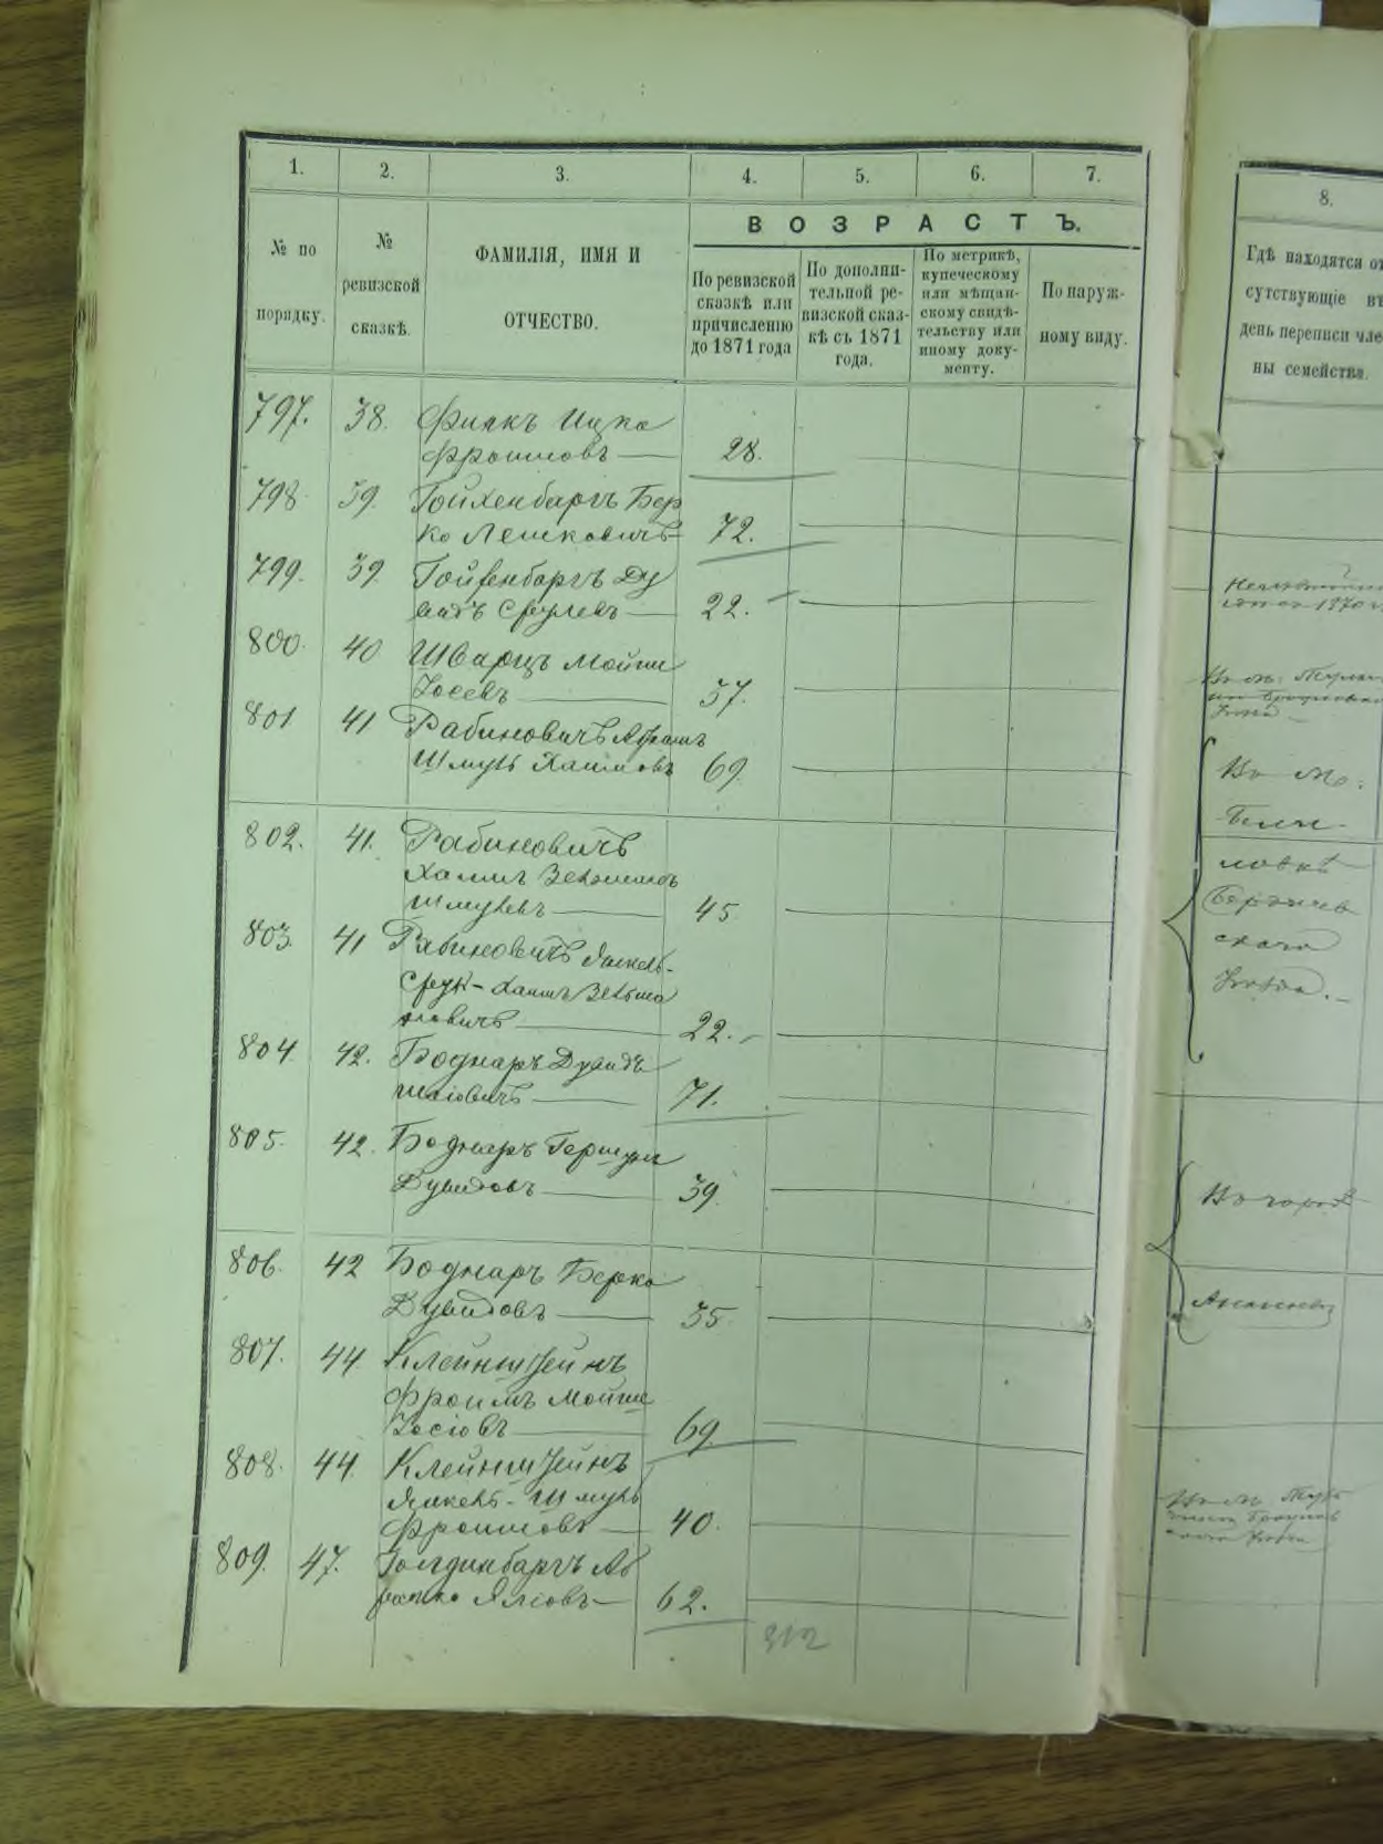 1. 2. 3. 4. 5. 6. 7.
ВОЗРАСТЪ.
№ по
порядку.
№
ревизской
сказкѣ.
ФАМИЛІЯ, ИМЯ И
ОТЧЕСТВО.
По ревизской
сказкѣ или
причисленію
до 1871 года
По дополни-
тельной ре-
визской сказ-
кѣ съ 1871
года.
По метрикѣ,
купеческому
или мѣщан-
скому свидѣ-
тельству или
иному доку-
менту.
По наруж-
ному виду.
797. 38. Фиакъ Ицко
Фроимовъ 28.
798 39. Гойхенбаргъ Бер
ко Лейковичъ 72.
799. 39. Гойхенбаргъ Ду
видъ Срулевъ 22.
800 40 Шварцъ Мойше
Іосевъ 37.
801 41 Рабиновичъ Абрамъ
Шмуль Хаимовъ 69.
802. 41. Рабиновичъ
Хаимъ Зельманъ
Шмулевъ 45
803. 41 Рабиновичъ Янкель-
Сруль-Хаимъ Зельма
новичъ 22.
804 42. Боднаръ Дувидъ
71.
805. 42. Боднаръ Гершун
Дувидовъ 39.
806. 42 Боднаръ Берко
Дувидовъ 35
807. 44 Клейнштейнъ
Фроимъ Мойше
Іосіовъ 69.
808. 44. Клейнштейнъ
Янкель-Шмуль
Фроимовъ 40.
809. 47. Голдинбаргъ Аб
рамко 62.
312
8.
Гдѣ находятся от
сутствующіе въ
день переписи чле
ны семейства.
Въ м.
Бѣли-
ловкѣ
Бердичев
скаго
Уѣзда.
Въ городѣ
Ананьевѣ